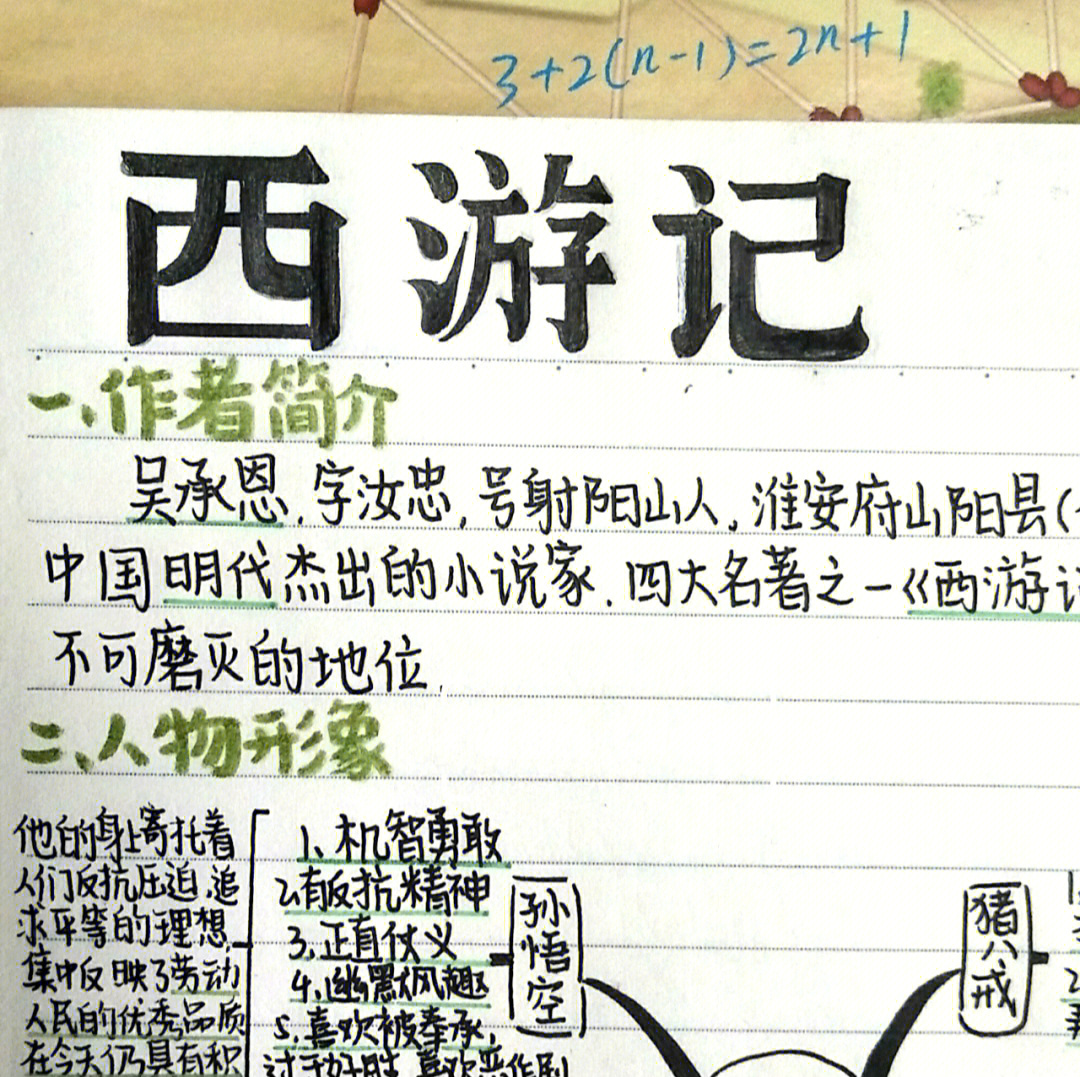 3+2(n-1)=2n+1
西游记
一、作者简介
吴承恩,字汝忠,号射阳山人,淮安府山阳县(
中国明代杰出的小说家.四大名著之一《西游记
不可磨灭的地位.
二、人物形象
他的身上寄托着
人们反抗压迫,追
求平等的理想,
集中反映了劳动
人民的优秀品质
在今天仍具有积
1、机智勇敢
2、有反抗精神
3、正直仗义
4、幽默风趣
5、喜欢被奉承,
过于好胜,喜欢恶作剧
孙悟空
猪八戒
1.
2